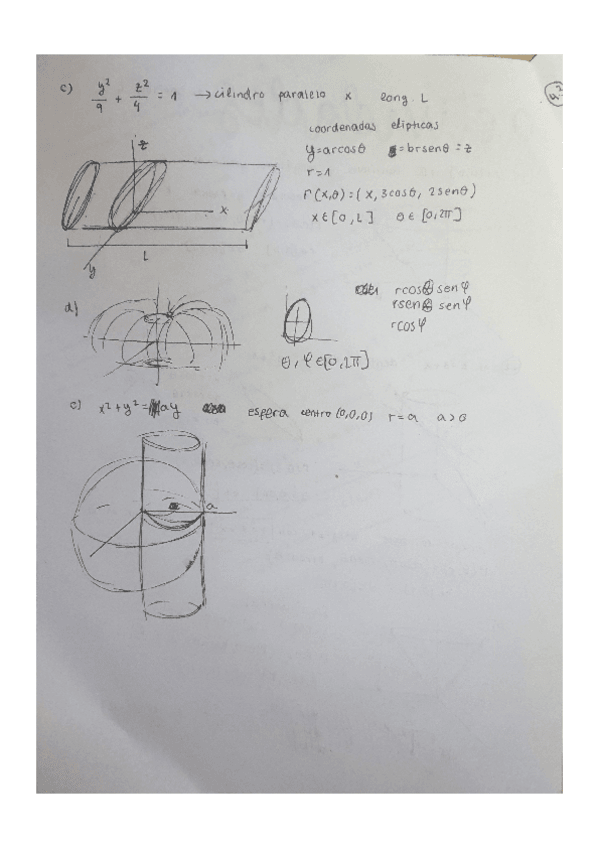 c) y²/9 + z²/4 = 1 → cilindro paralelo x long. L
coordenadas elípticas
y=arcosθ =brsenθ = z
r=1
r(x,θ)=(x, 3cosθ, 2senθ)
x∈[0,L] θ∈[0,2π]
z
x
L
y
d)
rcosθ senφ
rsenθ senφ
rcosφ
θ, φ∈[0,2π]
e) x²+y²= ay esfera centro (0,0,0) r=a a>0
a